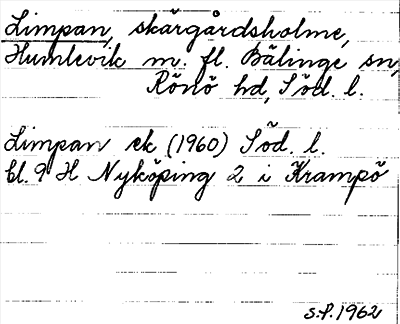 Limpan, skärgårdsholme,
Humlevik m. fl. Bälinge sn,
Rönö hd, Söd. l.
Limpan ek (1960) Söd. l.
bl. 9 H Nyköping 2 i Krampö
s.f. 1962